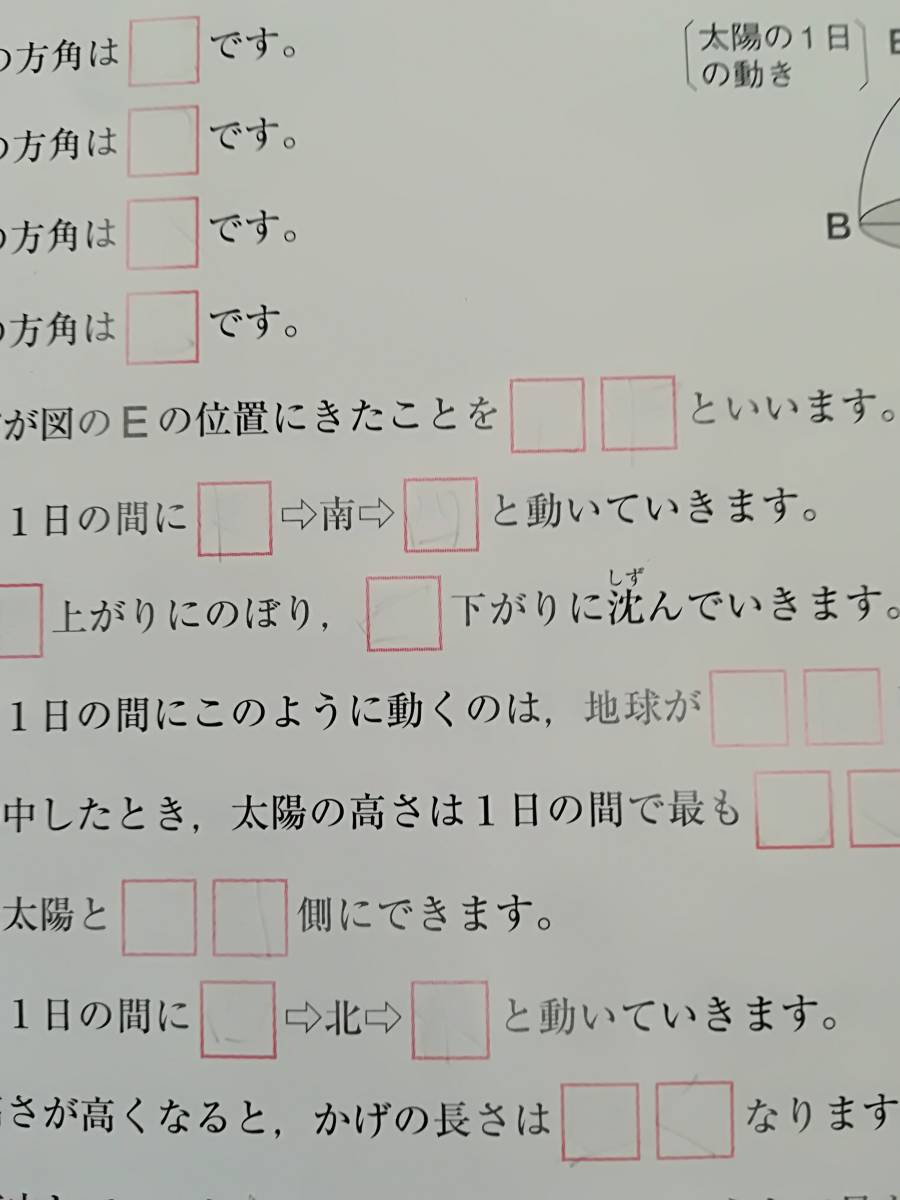 の方角は□です。
太陽の1日
の動き
の方角は□です。
B
の方角は□です。
の方角は□です。
が図のEの位置にきたことを□□といいます。
1日の間に□⇨南⇨□と動いていきます。
しず
□上がりにのぼり，□下がりに沈んでいきます。
1日の間にこのように動くのは，地球が□□
中したとき，太陽の高さは1日の間で最も□□
太陽と□□側にできます。
1日の間に□⇨北⇨□と動いていきます。
さが高くなると，かげの長さは□□なります